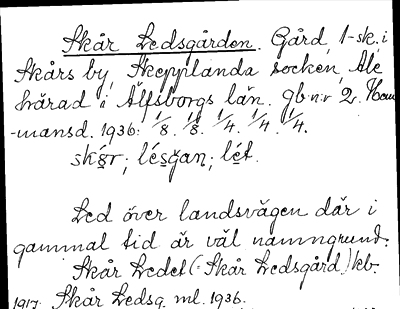 Skår Ledsgården. Gård, 1-sk. i
Skårs by, Skepplanda socken, Ale
härad i Älfsborgs län. gb nr 2. Hem
-mansd. 1936: 1/8. 1/8. 1/4. 1/4. 1/4.
skår, lésgan, lét.
Led över landsvägen där i
gammal tid är väl namngrund.
Skår Ledet (: Skår Ledsgård) kb.
1917. Skår Ledsg. ml. 1936.